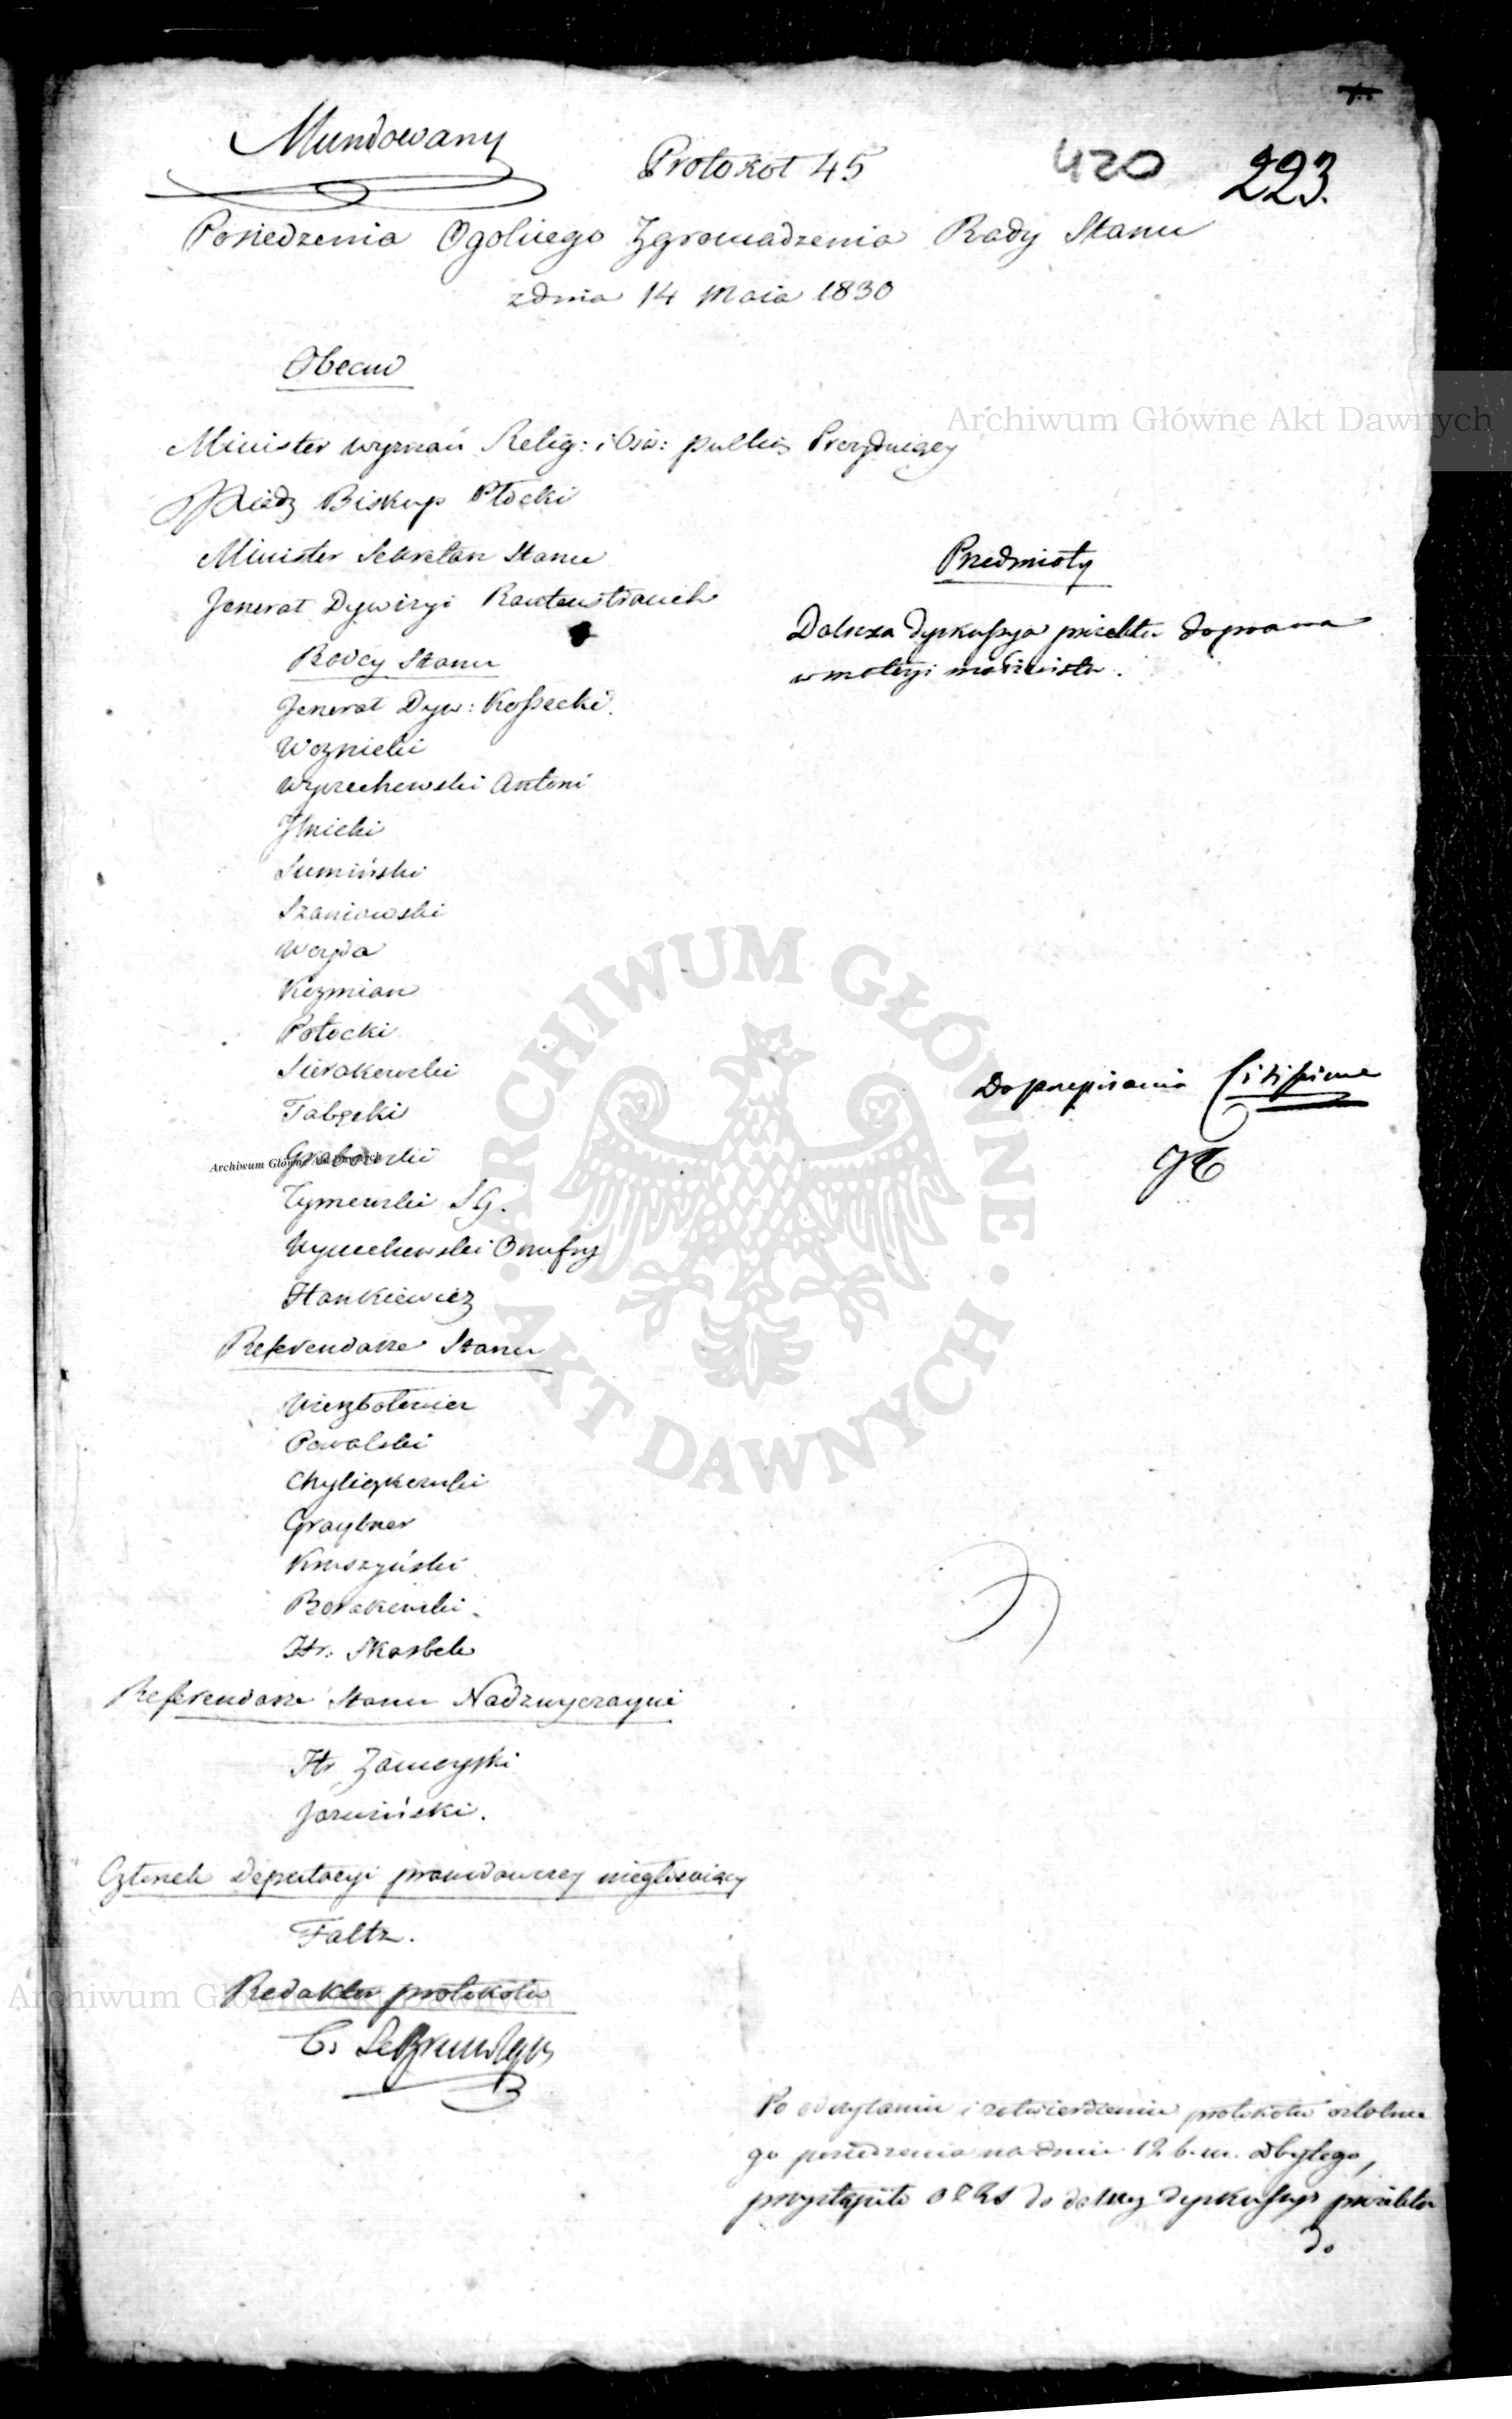 Mundowany
Protokół 45
420
223.
Posiedzenia Ogolnego Zgromadzenia Rady Stanu
z dnia 14 Maia 1830
Obecni
Minister wyznań Relig: i Ośw: publicz Prezyduiący
Xiądz Biskup Płocki
Minister Sekretarz Stanu
Jenerał Dywizyi Rautenstrauch
Radcy Stanu
Jenerał Dyw: Kossecki.
Woznicki
Wyczechowski Antoni
Ilnicki
Sumiński
Szaniawski
Woyda
Kozmian
Potocki
Sierakowski
Tabęcki
Grabowski
Tymowski SG.
Wyczechowski Onufry
Hankiewicz
Referendarze Stanu
Wierzbołowicz
Powalski
Chyliczkowski
Graybner
Kruszyński
Borakowski.
Hr: Skarbek
Referendarze Stanu Nadzwyczayni
Hr Zamoyski
Jaruziński.
Członek Deputacyi prawodawczey niegłosuiący
Faltz.
Redaktor protokołu
Przedmioty
Dalsza dyskussya proiektu do prawa
w materyi małżeństw.
Do przepisania Citissime
Po odczytaniu i zatwierdzeniu protokołu ostatnie
go posiedzenia na dniu 12 b. m. odbytego,
przystąpiło OZRS do dalszey dyskussyi proiektu
do
Archiwum Główne Akt Dawnych
Archiwum Główne Akt Dawnych
Archiwum Główne Akt Dawnych
ARCHIWUM GŁÓWNE · AKT DAWNYCH ·